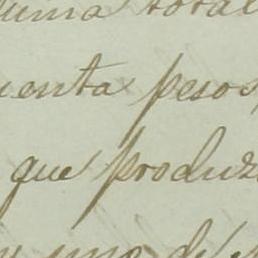 suma total
uenta pesos,
que produz
uno de